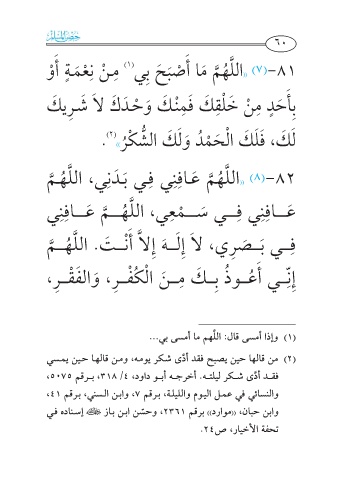 حصن المسلم
٦٠
٨١-(٧) «اللَّهُمَّ مَا أَصْبَحَ بِي(١) مِنْ نِعْمَةٍ أَوْ
بِأَحَدٍ مِنْ خَلْقِكَ فَمِنْكَ وَحْدَكَ لاَ شَرِيكَ
لَكَ، فَلَكَ الْحَمْدُ وَلَكَ الشُّكْرُ»(٢).
٨٢-(٨) «اللَّهُمَّ عَافِنِي فِي بَدَنِي، اللَّهُمَّ
عَـافِنِي فِـي سَـمْعِي، اللَّهُـمَّ عَـافِنِي
فِـي بَـصَرِي، لاَ إِلَـهَ إِلاَّ أَنْـتَ. اللَّهُـمَّ
إِنِّـي أَعُـوذُ بِـكَ مِـنَ الْكُفْـرِ، وَالفَقْـرِ،
(١) وإذا أمسى قال: اللَّهم ما أمسى بي...
(٢) من قالها حين يصبح فقد أدَّى شكر يومه، ومن قالها حين يمسي
فقـد أدَّى شـكر ليلتـه. أخرجـه أبـو داود، ٤/ ٣١٨، بـرقم ٥٠٧٥،
والنسائي في عمـل اليـوم والليلـة، بـرقم ٧، وابـن السـني، بـرقم ٤١،
وابن حبان، «موارد» برقم ٢٣٦١، وحسّن ابـن بـاز إسـناده فـي
تحفة الأخيار، ص٢٤.